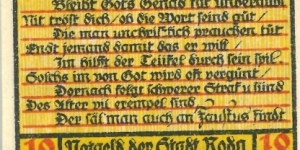 Bleibt Gots Genad für unbedaubt
Nit tröst dich / ob die Wort seind gut /
Die man unchristlich prauchen tut
Endt jemand damit das er wil /
Im hilfft der Teüfel durch sein spil
Solchs im von Got wird oft vergünt /
Dornach folgt schwerer Straf u sünd
Des After wil exempel sind
Der sal man auch an Faustus findt
10 Notgeld der Stadt Roda 10